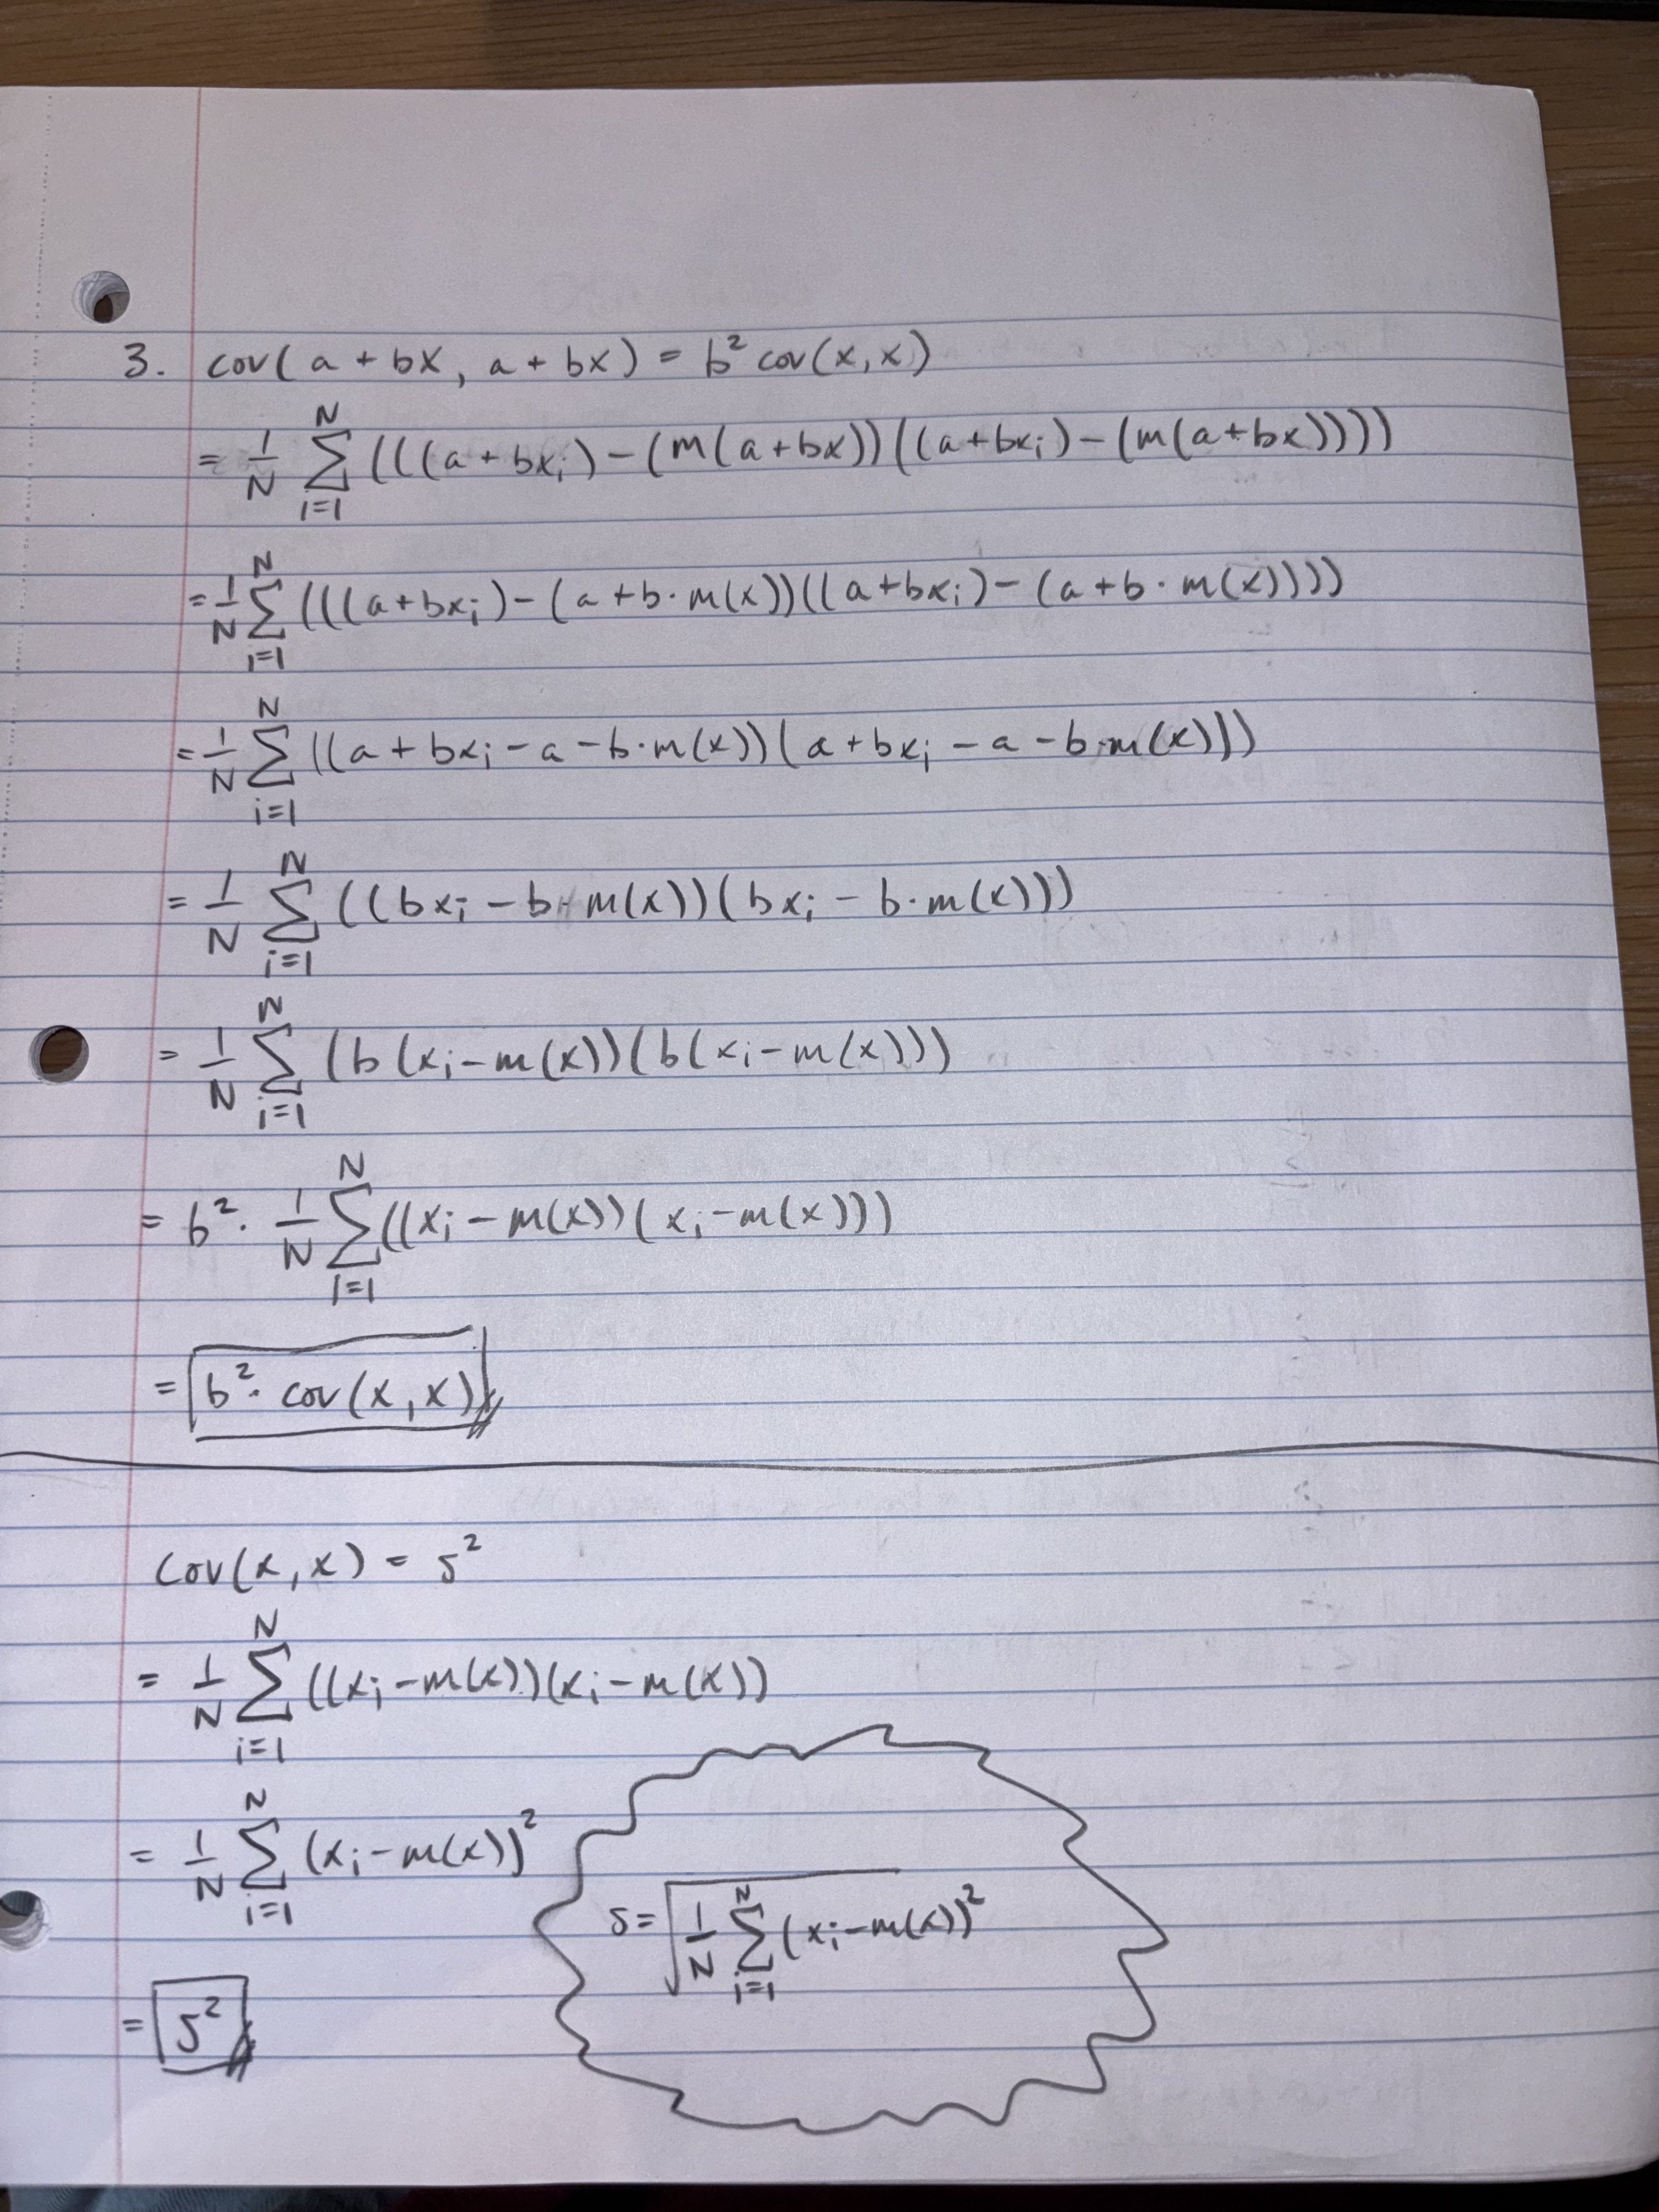 3. cov(a + bX, a + bX) = b² cov(x,x)
= 1/N N∑i=1 (((a + bxᵢ) - (m(a+bx))((a+bxᵢ) - (m(a+bx))))
= 1/N N∑i=1 (((a+bxᵢ) - (a+b·m(x))((a+bxᵢ) - (a+b·m(x))))
= 1/N N∑i=1 ((a + bxᵢ - a - b·m(x))(a + bxᵢ - a - b·m(x)))
= 1/N N∑i=1 ((bxᵢ - b·m(x))(bxᵢ - b·m(x)))
= 1/N N∑i=1 (b(xᵢ - m(x))(b(xᵢ - m(x)))
= b² · 1/N N∑i=1 ((xᵢ - m(x))(xᵢ - m(x)))
= b² · cov(x,x)
cov(x,x) = s²
= 1/N N∑i=1 ((xᵢ - m(x))(xᵢ - m(x))
= 1/N N∑i=1 (xᵢ - m(x))²
s = √1/N N∑i=1 (xᵢ - m(x))²
= s²